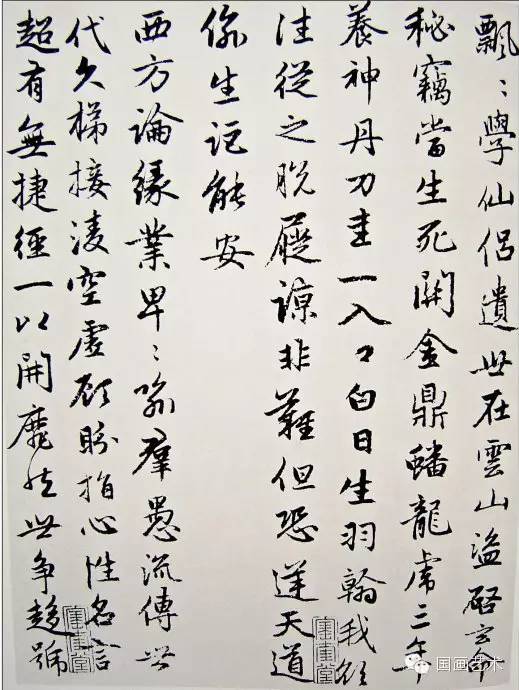 飄〻學仙侶遺世在雲山盜啓玄命
秘竊當生死關金鼎蟠龍虎三年
養神丹刀圭一入口白日生羽翰我欲
往從之脫屣諒非難但恐逆天道
偷生詎能安
西方論緣業卑〻喻羣愚流傳世
代久梯接凌空虛顧盼指心性名言
超有無捷徑一以開靡然世争趨號
国画艺术